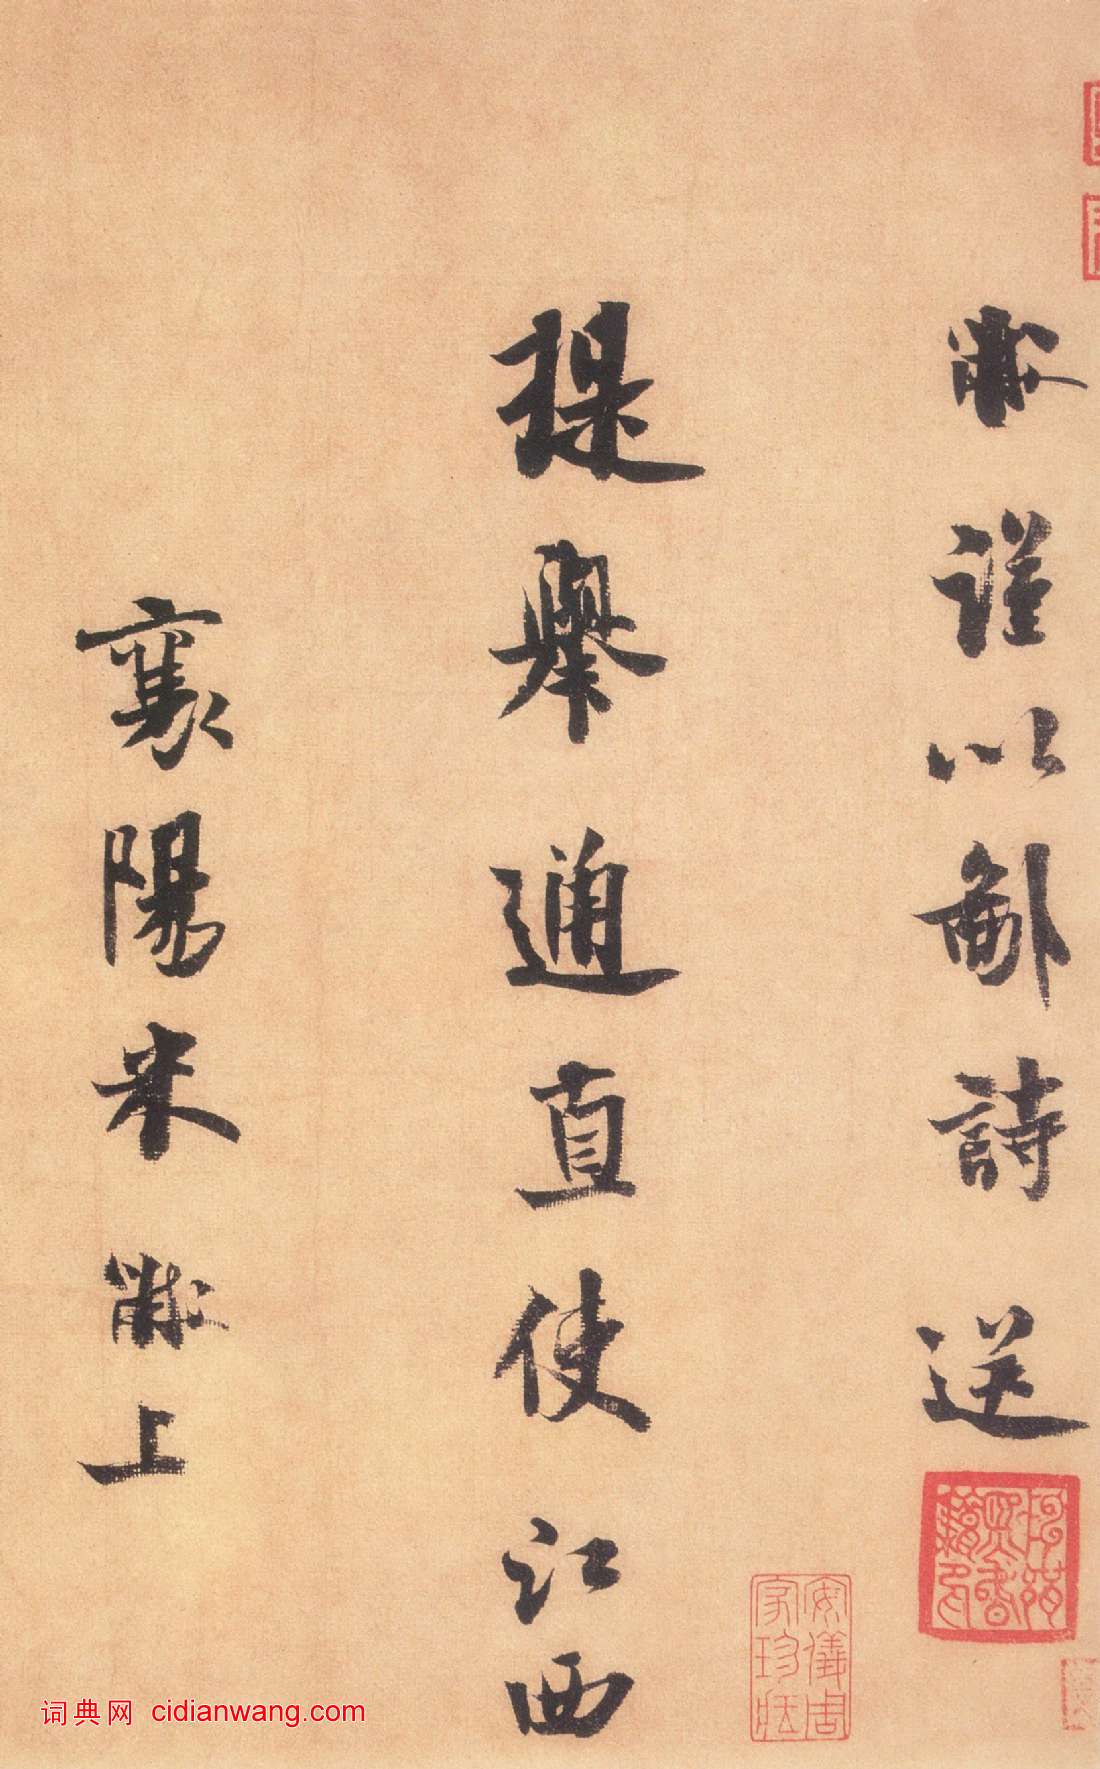 黻謹以鄙詩送
提舉通直使江西
襄陽米黻上
安儀周
家珍藏
词典网 cidianwang.com